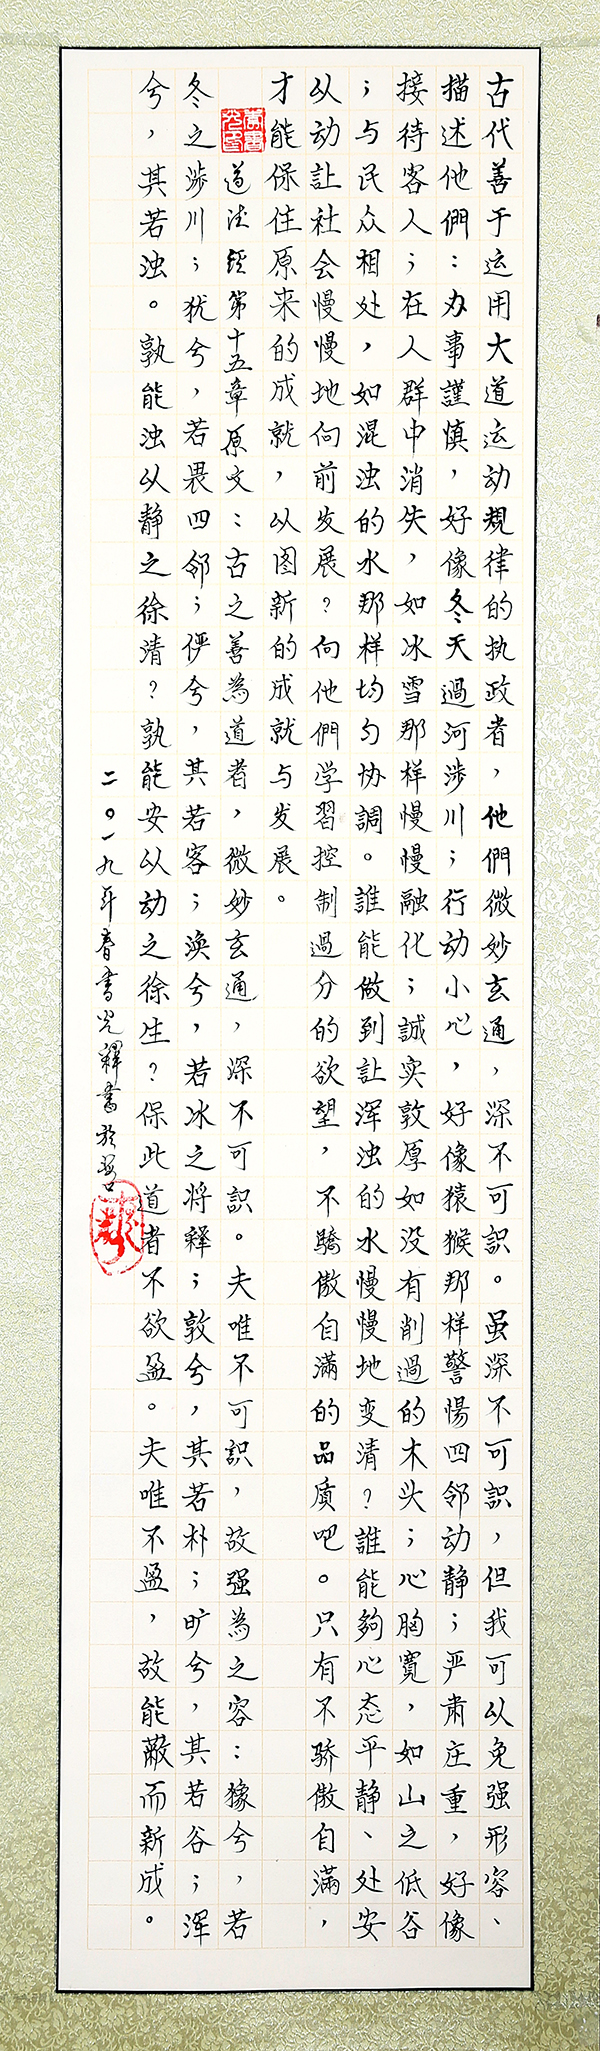 古代善于运用大道运动规律的执政者，他們微妙玄通，深不可識。虽深不可識，但我可以免强形容、
描述他們：办事謹慎，好像冬天過河涉川；行动小心，好像猿猴那样警惕四邻动静；严肃庄重，好像
接待客人；在人群中消失，如冰雪那样慢慢融化；誠实敦厚如没有削過的木头；心胸寬，如山之低谷
；与民众相处，如混浊的水那样均匀协調。誰能做到让浑浊的水慢慢地变清？誰能夠心态平静、处安
以动让社会慢慢地向前发展？向他們学習控制過分的欲望，不驕傲自滿的品质吧。只有不骄傲自滿，
才能保住原来的成就，以图新的成就与发展。
道德经第十五章原文：古之善為道者，微妙玄通，深不可識。夫唯不可識，故强為之容：豫兮，若
冬之涉川；犹兮，若畏四邻；俨兮，其若客；涣兮，若冰之将释；敦兮，其若朴；旷兮，其若谷；浑
兮，其若浊。孰能浊以静之徐清？孰能安以动之徐生？保此道者不欲盈。夫唯不盈，故能蔽而新成。
二〇一九年春書